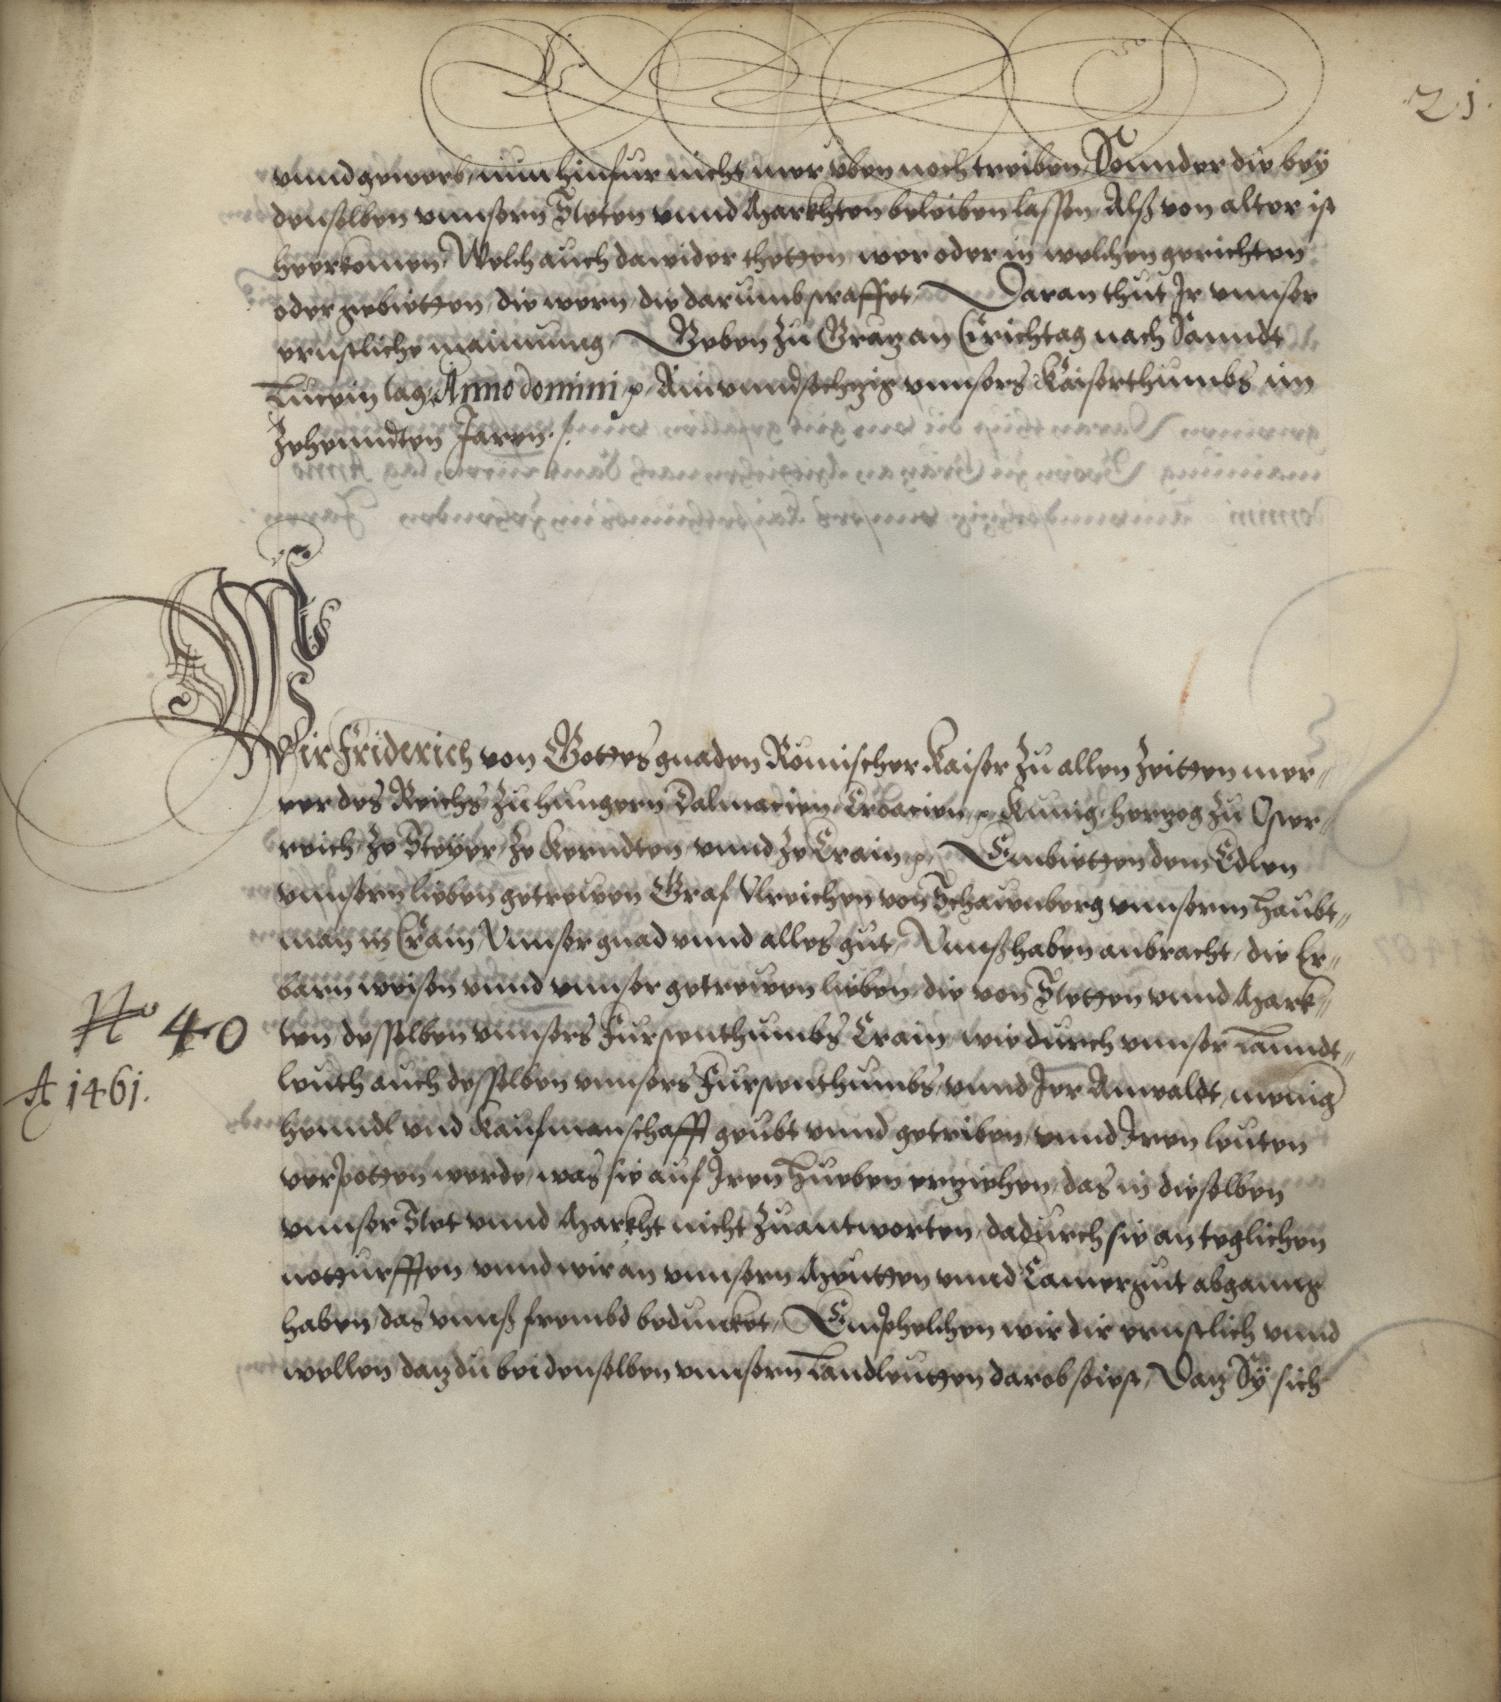 21.
vnnd gewerb, nun hinfur nicht mer vben noch treiben, Sonnder die bey
denselben vnnsern Steten vnnd Markhten beleiben lassen, Alß von alter ist
heerkomen, Welch auch dawider thetten, wer oder in welchen gerichten
oder gebietten, die wern, die darumb straffet, Daran thut Ir vnnser
ernstliche mainnung, Geben zu Graz an Erichtag nach Sanndt
Lucein tag, Anno domini p. Ainvnndsechzig vnnsers Kaiserthumbs im
Zehenndten Jaren./.
Wir Friderich von Gottes gnaden Römischer Kaiser zu allen Zeitten mer„
rer des Reichs zu hungern Dalmacien, Croacien, p. Kunig, herzog zu Oster„
reich, ze Steyer, ze Kerndten vnnd ze Crain, p. Embietten dem Edlen
vnnserm lieben getrewen Graf Vlreichen von Schawnberg vnnserm haubt„
man in Crain, Vnnser gnad vnnd alles gut, Vnnß haben anbracht, die Er„
barn weisen vnnd vnnser getrewen lieben, die von Stetten vnnd Mark„
ten desselben vnnsers Furstenthumbs Crain, wie durch vnnser Lanndt„
No 40
leuth auch desselben vnnsers Furstenthumbs, vnnd Irer Anwaldt, menig
A 1461.
henndl vnd Kaufmanschafft geubt vnnd getriben, vnnd Iren leuten
verpotten werde, was sie auf Iren Hueben erziehen, das in dieselben
vnnser Stet vnnd Markht nicht zuantworten, dadurch sie an teglichen
notturfften vnnd wir an vnnsern Meutten vnnd Camergut abganng
haben, das vnnß frembd bedunket, Emphelchen wir dir ernstlich vnnd
wellen, daz du bei denselben vnnsern Landleutten darob seiest, Daz Sy sich